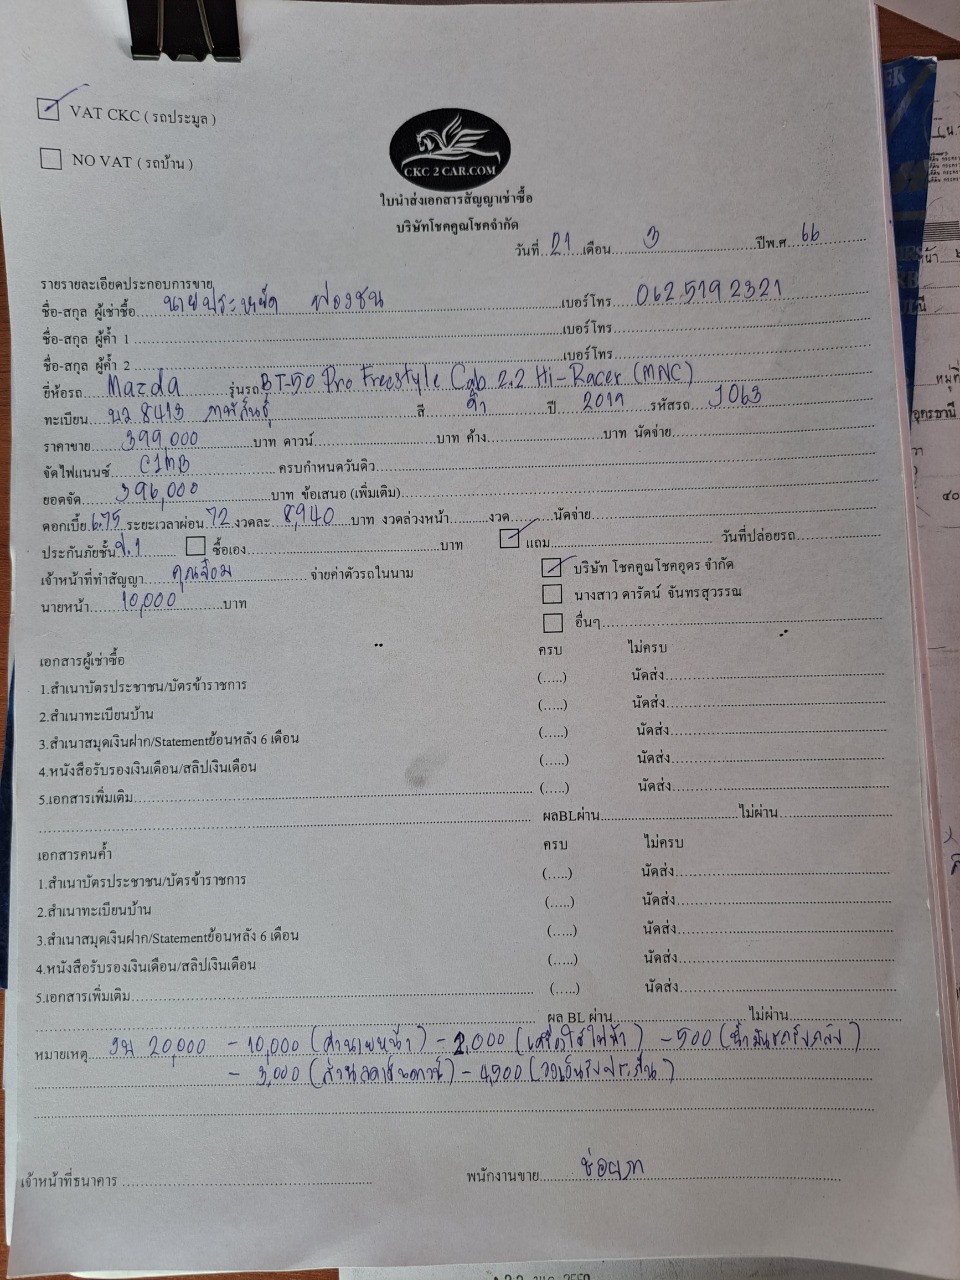 VAT CKC ( รถประมูล )
NO VAT ( รถบ้าน )
CKC 2 CAR.COM
ใบนำส่งเอกสารสัญญาเช่าซื้อ
บริษัทโชคคูณโชคจำกัด
วันที่ 21 เดือน 3 ปีพ.ศ 66
รายรายละเอียดประกอบการขาย
ชื่อ-สกุล ผู้เช่าซื้อ นายประหยัด เบอร์โทร 062 519 2321
ชื่อ-สกุล ผู้ค้ำ 1 เบอร์โทร
ชื่อ-สกุล ผู้ค้ำ 2 เบอร์โทร
ยี่ห้อรถ Mazda รุ่นรถ BT-50 Pro Freestyle Cab 2.2 Hi-Racer (MNC)
ทะเบียน นว 8413 กาฬสินธุ์ สี ดำ ปี 2019 รหัสรถ J063
ราคาขาย 399,000 บาท ดาวน์ บาท ค้าง บาท นัดจ่าย
จัดไฟแนนซ์ CIMB ครบกำหนดวันดิว
ยอดจัด 396,000 บาท ข้อเสนอ (เพิ่มเติม)
ดอกเบี้ย 6.75 ระยะเวลาผ่อน 72 งวดละ 8,940 บาท งวดล่วงหน้า งวด นัดจ่าย
ประกันภัยชั้น ป.1 ซื้อเอง บาท แถม วันที่ปล่อยรถ
เจ้าหน้าที่ทำสัญญา คุณจ๋อม จ่ายค่าตัวรถในนาม บริษัท โชคคูณโชคอุดร จำกัด
นางสาว ดารัตน์ จันทรสุวรรณ
นายหน้า 10,000 บาท
อื่นๆ
เอกสารผู้เช่าซื้อ ครบ ไม่ครบ
1.สำเนาบัตรประชาชน/บัตรข้าราชการ (.....) นัดส่ง
2.สำเนาทะเบียนบ้าน (.....) นัดส่ง
3.สำเนาสมุดเงินฝาก/Statementย้อนหลัง 6 เดือน (.....) นัดส่ง
4.หนังสือรับรองเงินเดือน/สลิปเงินเดือน (.....) นัดส่ง
5.เอกสารเพิ่มเติม (.....) นัดส่ง
ผลBLผ่าน ไม่ผ่าน
เอกสารคนค้ำ ครบ ไม่ครบ
1.สำเนาบัตรประชาชน/บัตรข้าราชการ (.....) นัดส่ง
2.สำเนาทะเบียนบ้าน (.....) นัดส่ง
3.สำเนาสมุดเงินฝาก/Statementย้อนหลัง 6 เดือน (.....) นัดส่ง
4.หนังสือรับรองเงินเดือน/สลิปเงินเดือน (.....) นัดส่ง
5.เอกสารเพิ่มเติม (.....) นัดส่ง
ผล BL ผ่าน ไม่ผ่าน
หมายเหตุ งบ 20,000 - 10,000 (ค่านายหน้า) - 2,000 (เครื่องใช้ไฟฟ้า) - 500 (น้ำมันรถครึ่งถัง)
- 3,000 (ส่วนลดเงินดาวน์) - 4,500
เจ้าหน้าที่ธนาคาร พนักงานขาย ช่อผกา